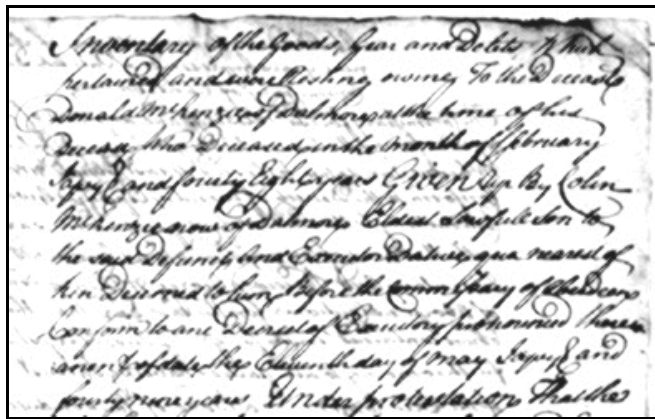 Inventary of the Goods, Gear and Debts, Which
pertained and were Resting owing To the Deceast
Donald McKenzie of Dalmore at the time of his
Decease, Who Deceased in the month of February
and fourty Eight years Given up By Colin
McKenzie now of Dalmore Eldest Lawfull Son to
the said Defunct, And Executor Dative, qua nearest of
kin Decerned to him Before the Commissary of
Conform to ane Decreet of Executory pronounced there
anent of date the Eleventh day of May and
fourty nine years. Under protestation That the